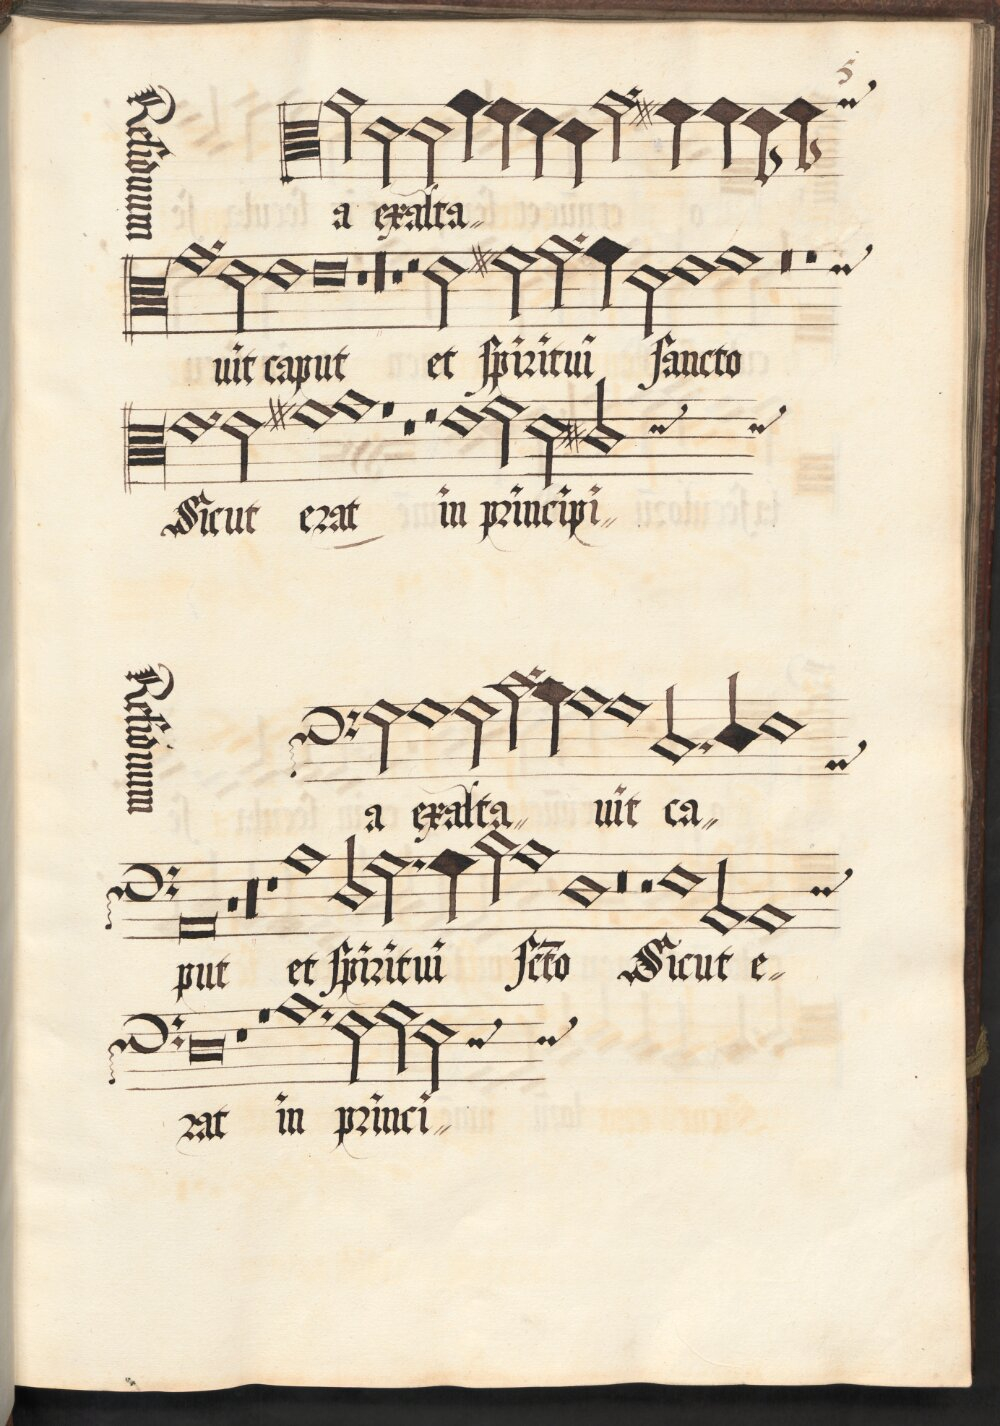 5
Residuum
a exalta„
uit caput et spiritui sancto
Sicut erat in principi„
Residuum
a exalta„ uit ca„
put et spiritui scto Sicut e„
rat in princi„